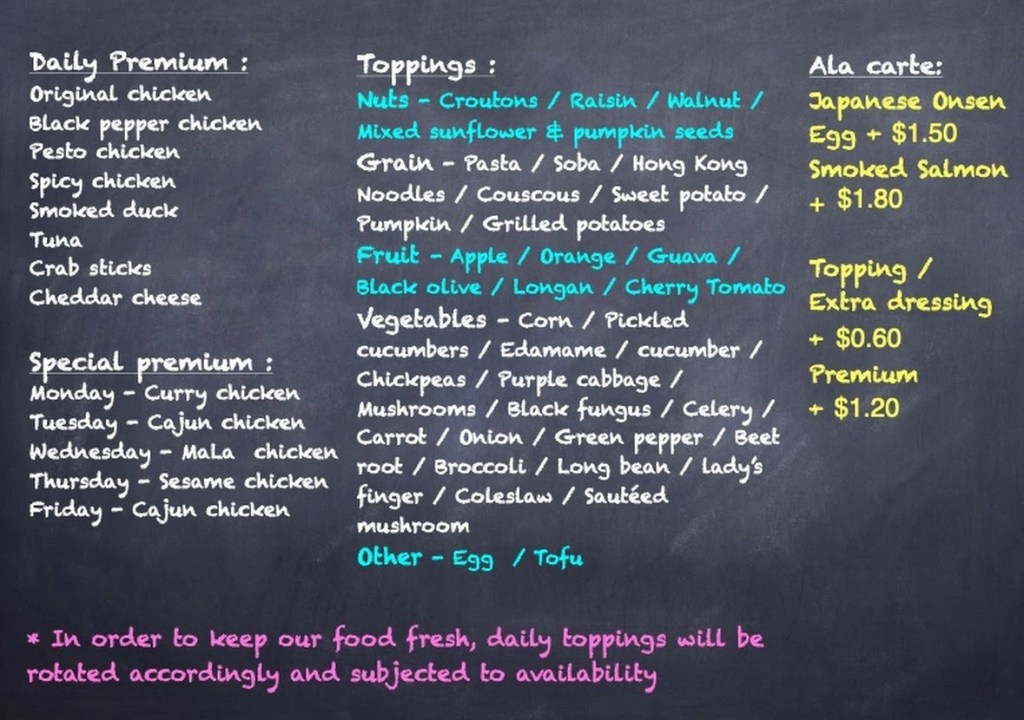 Daily Premium :
Original chicken
Black pepper chicken
Pesto chicken
Spicy chicken
Smoked duck
Tuna
Crab sticks
Cheddar cheese
Special premium :
Monday – Curry chicken
Tuesday – Cajun chicken
Wednesday – MaLa chicken
Thursday – Sesame chicken
Friday – Cajun chicken
Toppings :
Nuts – Croutons / Raisin / Walnut /
Mixed sunflower & pumpkin seeds
Grain – Pasta / Soba / Hong Kong
Noodles / Couscous / Sweet potato /
Pumpkin / Grilled potatoes
Fruit – Apple / Orange / Guava /
Black olive / Longan / Cherry Tomato
Vegetables – Corn / Pickled
cucumbers / Edamame / cucumber /
Chickpeas / Purple cabbage /
Mushrooms / Black fungus / Celery /
Carrot / Onion / Green pepper / Beet
root / Broccoli / Long bean / lady's
finger / Coleslaw / Sautéed
mushroom
Other – Egg / Tofu
Ala carte:
Japanese Onsen
Egg + $1.50
Smoked Salmon
+ $1.80
Topping /
Extra dressing
+ $0.60
Premium
+ $1.20
* In order to keep our food fresh, daily toppings will be
rotated accordingly and subjected to availability